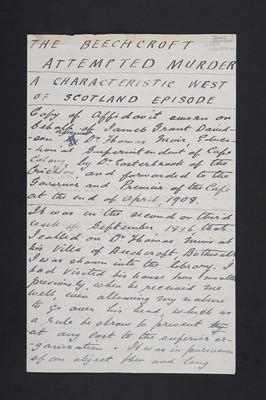 THE BEECHCROFT
ATTEMPTED MURDER
A CHARACTERISTIC WEST
OF SCOTLAND EPISODE
Copy of Affidavit sworn on
behalf of James Grant David-
son Dr Thomas Muir, Educa-
-tional Superintendent of Cape
Colony, by Dr. Easterbrook of the
Crichton, and forwarded to the
Governor and Premier of the Cape
at the end of April, 1908.
It was in the second or third
week of September, 1896, that
I called on Dr. Thomas Muir at
his Villa of Beechcroft, Bothwell
I was shown into the library. I
had visited his house two months
previously, when he received me
well, even allowing my nature
to go over his head, which as
a rule he strove to prevent
at any cost to the superior or-
-ganisation. It was in pursuance
of an object then and long